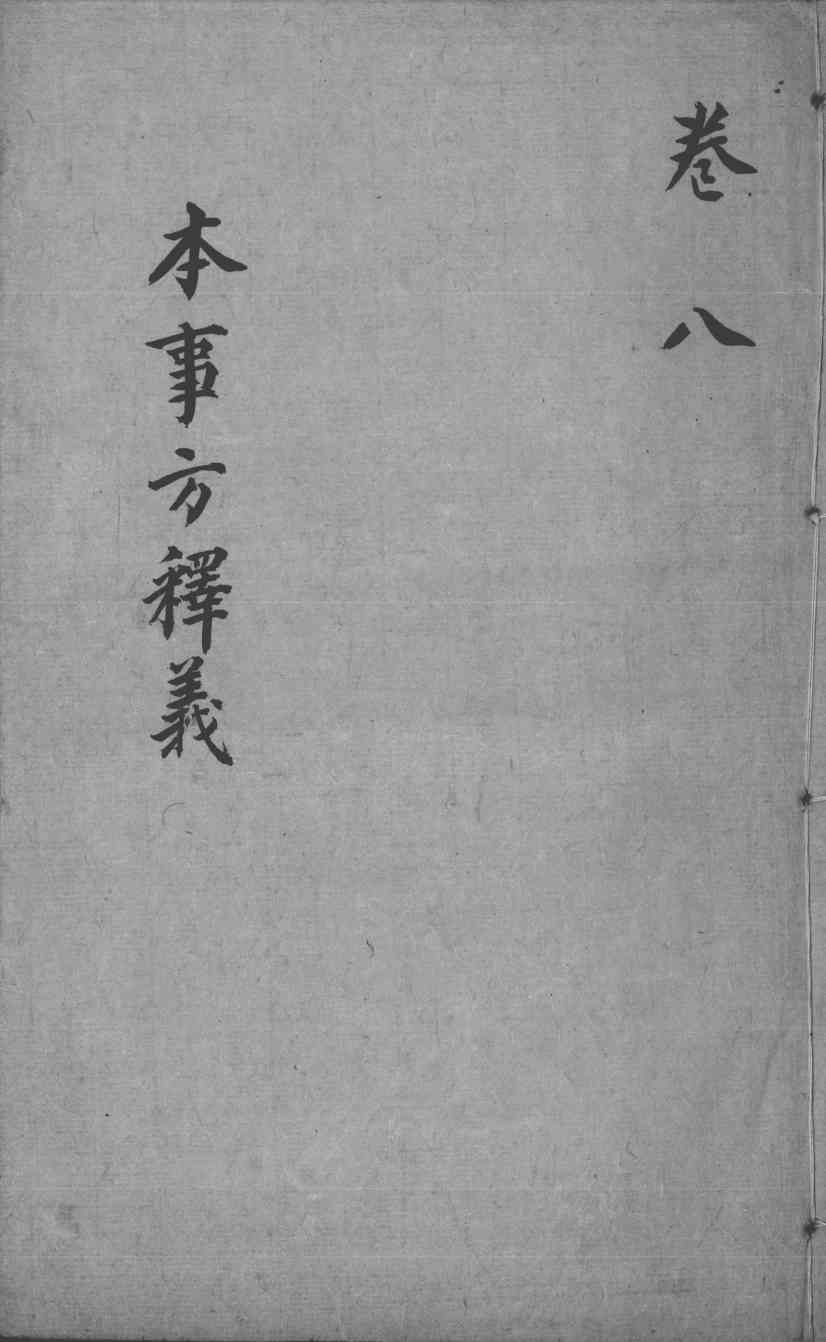 卷八
本事方釋義